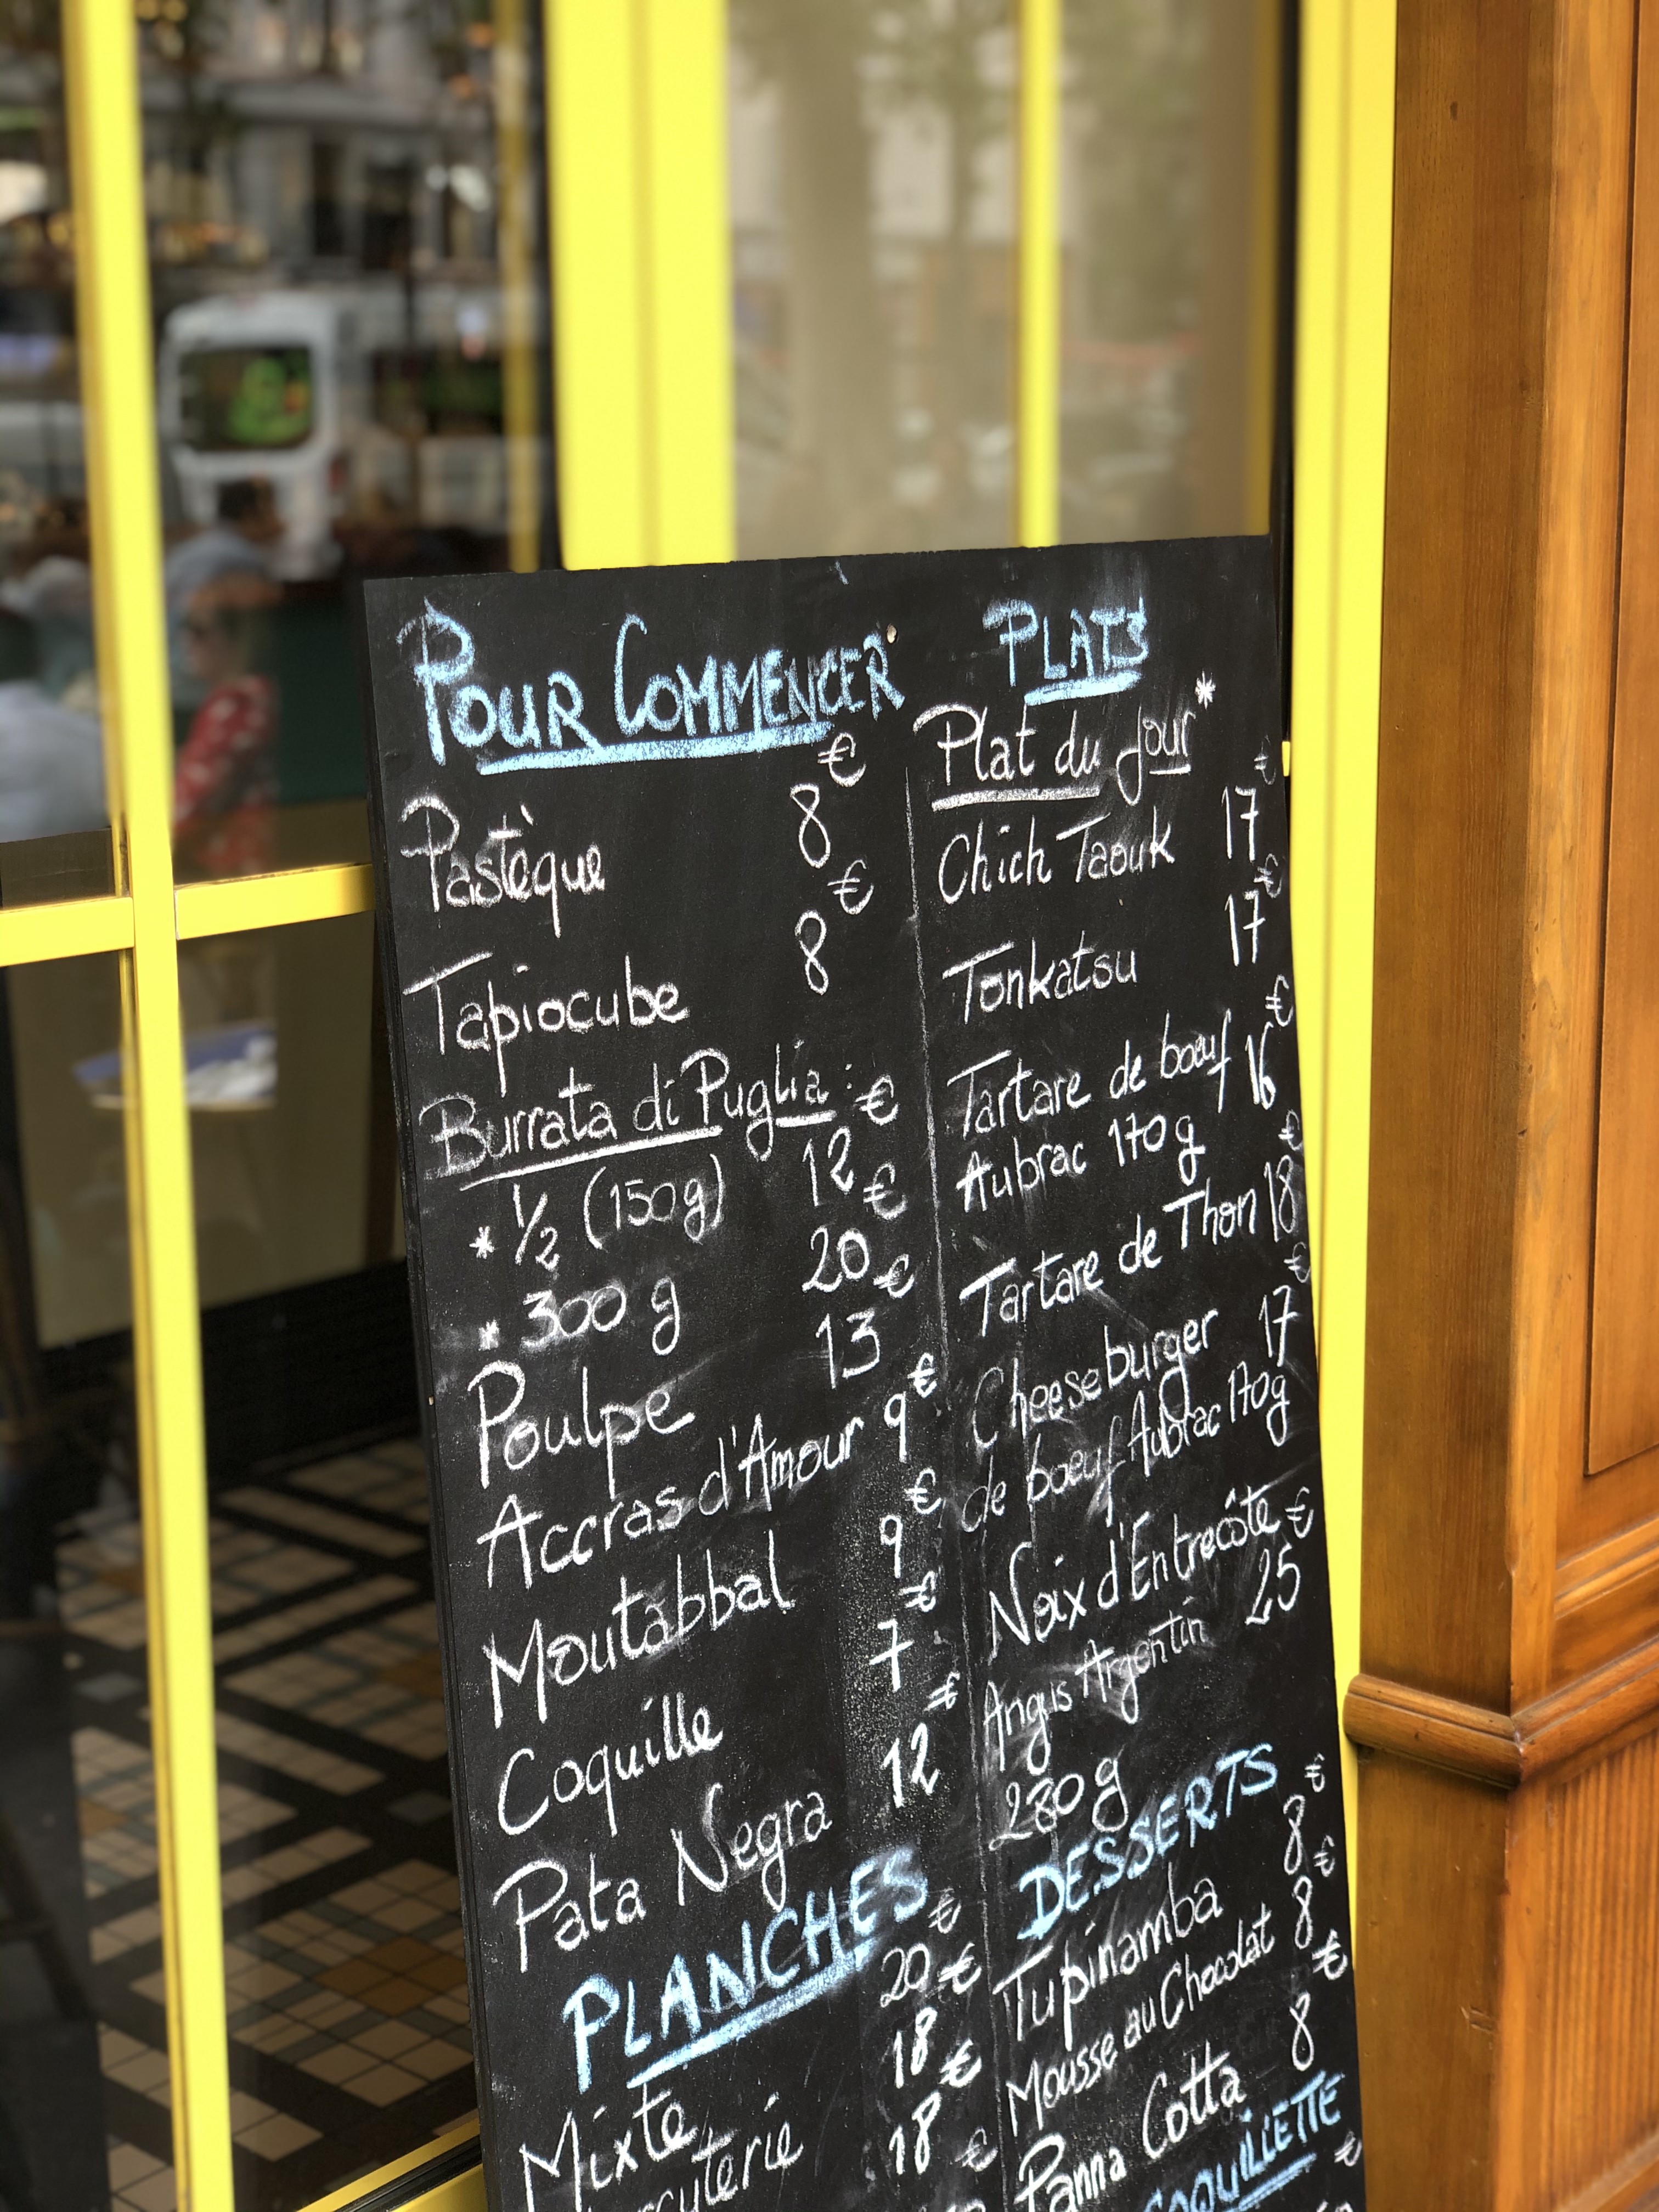 POUR COMMENCER
€
Pastèque 8
€
Tapiocube 8
Burrata di Puglia : €
* ½ (150g) 12
€
* 300 g 20
€
Poulpe 13
€
Accras d'Amour 9
€
Moutabbal 9
€
Coquille 7
€
Pata Negra 12
PLANCHES
€
Mixte 20
€
18
€
18
€
PLATS
Plat du Jour*
€
Chich Taouk 17
€
Tonkatsu 17
€
Tartare de bœuf 16
Aubrac 170 g
€
Tartare de Thon 18
€
Cheeseburger 17
de boeuf Aubrac 170g
Noix d'Entrecôte €
Angus Argentin 25
230 g
DESSERTS
€
Tupinamba 8
€
Mousse au Chocolat 8
€
Panna Cotta 8
€